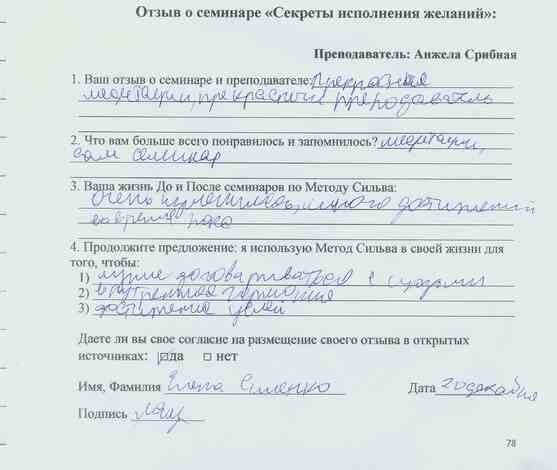 Отзыв о семинаре «Секреты исполнения желаний»:
Преподаватель: Анжела Срибная
1. Ваш отзыв о семинаре и преподавателе: Прекрасные
медитации, прекрасный преподаватель
2. Что вам больше всего понравилось и запомнилось? медитации,
сам семинар
3. Ваша жизнь До и После семинаров по Методу Сильва:
очень изменилась, много достижений
4. Продолжите предложение: я использую Метод Сильва в своей жизни для
того, чтобы:
1) лучше договариваться с людьми
2) внутренняя гармония
3) достижение целей
Даете ли вы свое согласие на размещение своего отзыва в открытых
источниках: да нет
Имя, Фамилия Елена Дата 20 декабря
Подпись
78